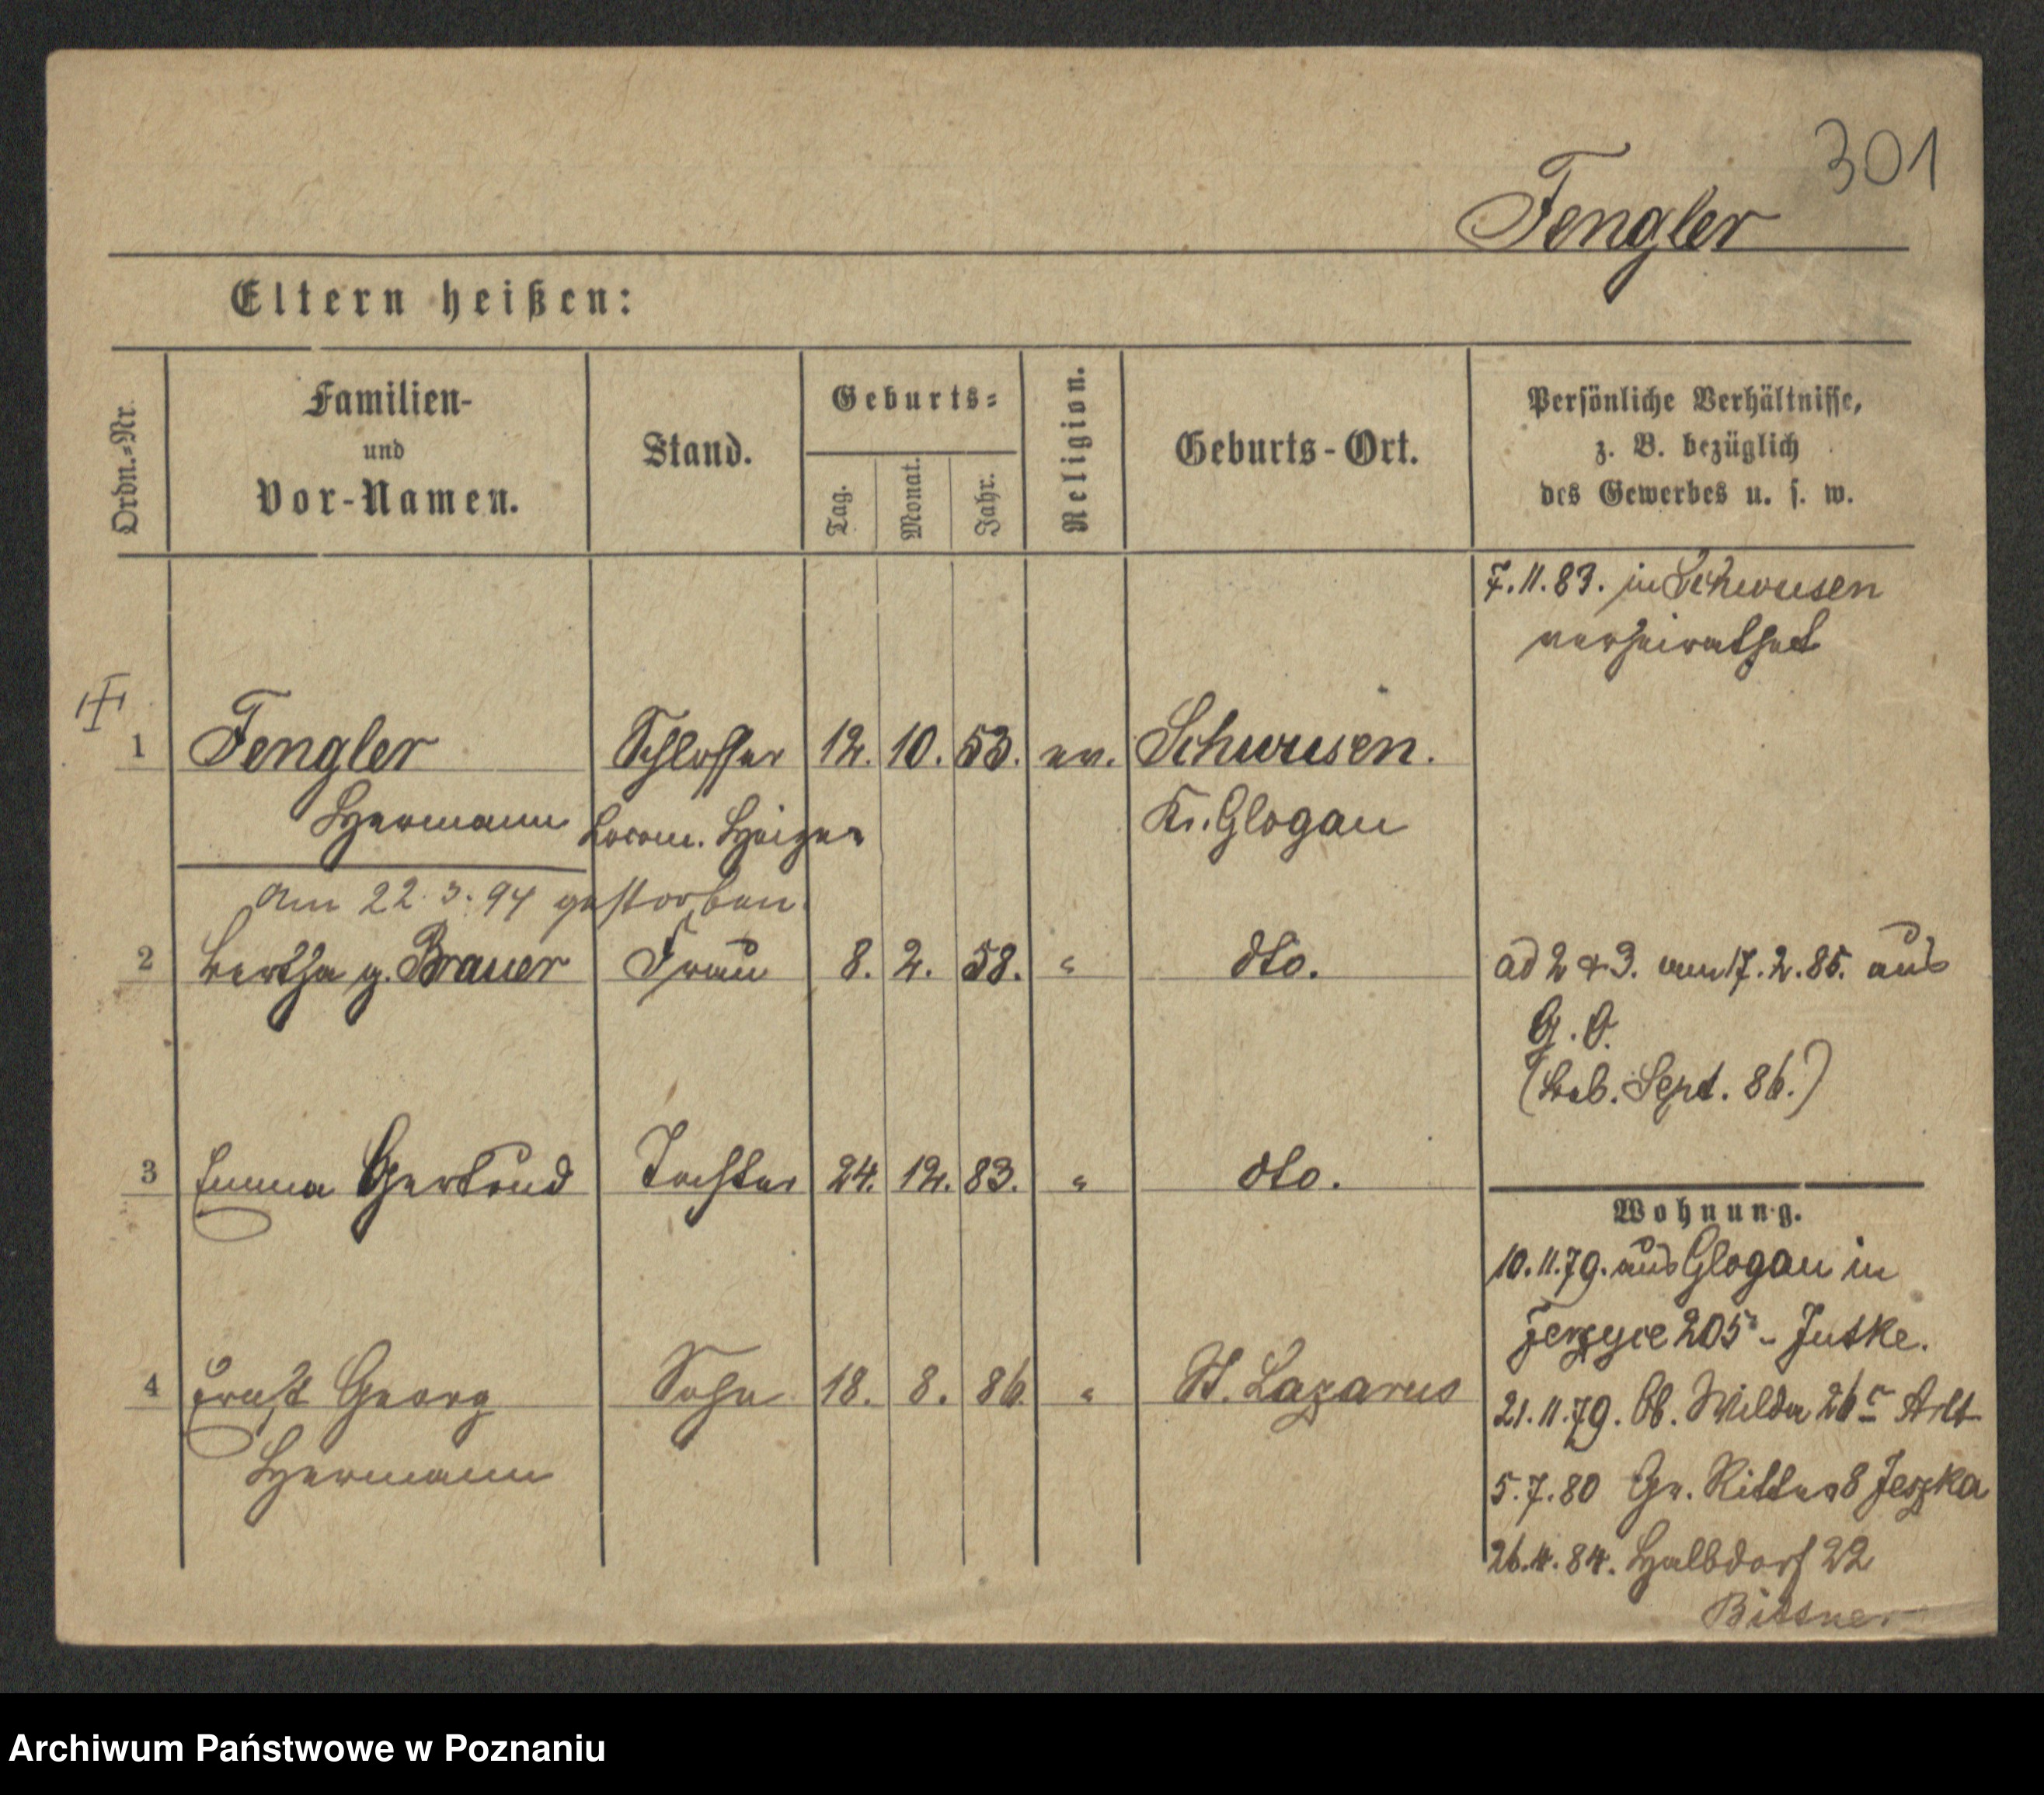 301
Fengler
Eltern heißen:
Ordn.-Nr.
Familien-
und
Vor-Namen.
Stand.
Geburts-
Tag.
Monat.
Jahr.
Religion.
Geburts-Ort.
Persönliche Verhältnisse,
z. B. bezüglich
des Gewerbes u. s. w.
7.11.83. in Schwusen
verheirathet
1 Fengler Schlosser 12. 10. 53. ev. Schwusen.
Hermann Locom. Heizer Kr. Glogau
am 22.3.94 gestorben.
2 Bertha g. Brauer Frau 8. 2. 58. " dto. ad 2 & 3. am 17.2.85. aus
G. O.
(Leb. Sept. 86.)
3 Emma Gertrud Tochter 24. 12. 83. " dto.
Wohnung.
10.11.79. aus Glogau in
Jerzyce 205 Jutke.
4 Ernst Georg Sohn 18. 8. 86. " St. Lazarus
Hermann
21.11.79. Ob. Wilda 26 c Arlt
5.7.80 Gr. Ritter 8 Jeszka
26.4.84. Halbdorf 22
Bittner
Archiwum Państwowe w Poznaniu